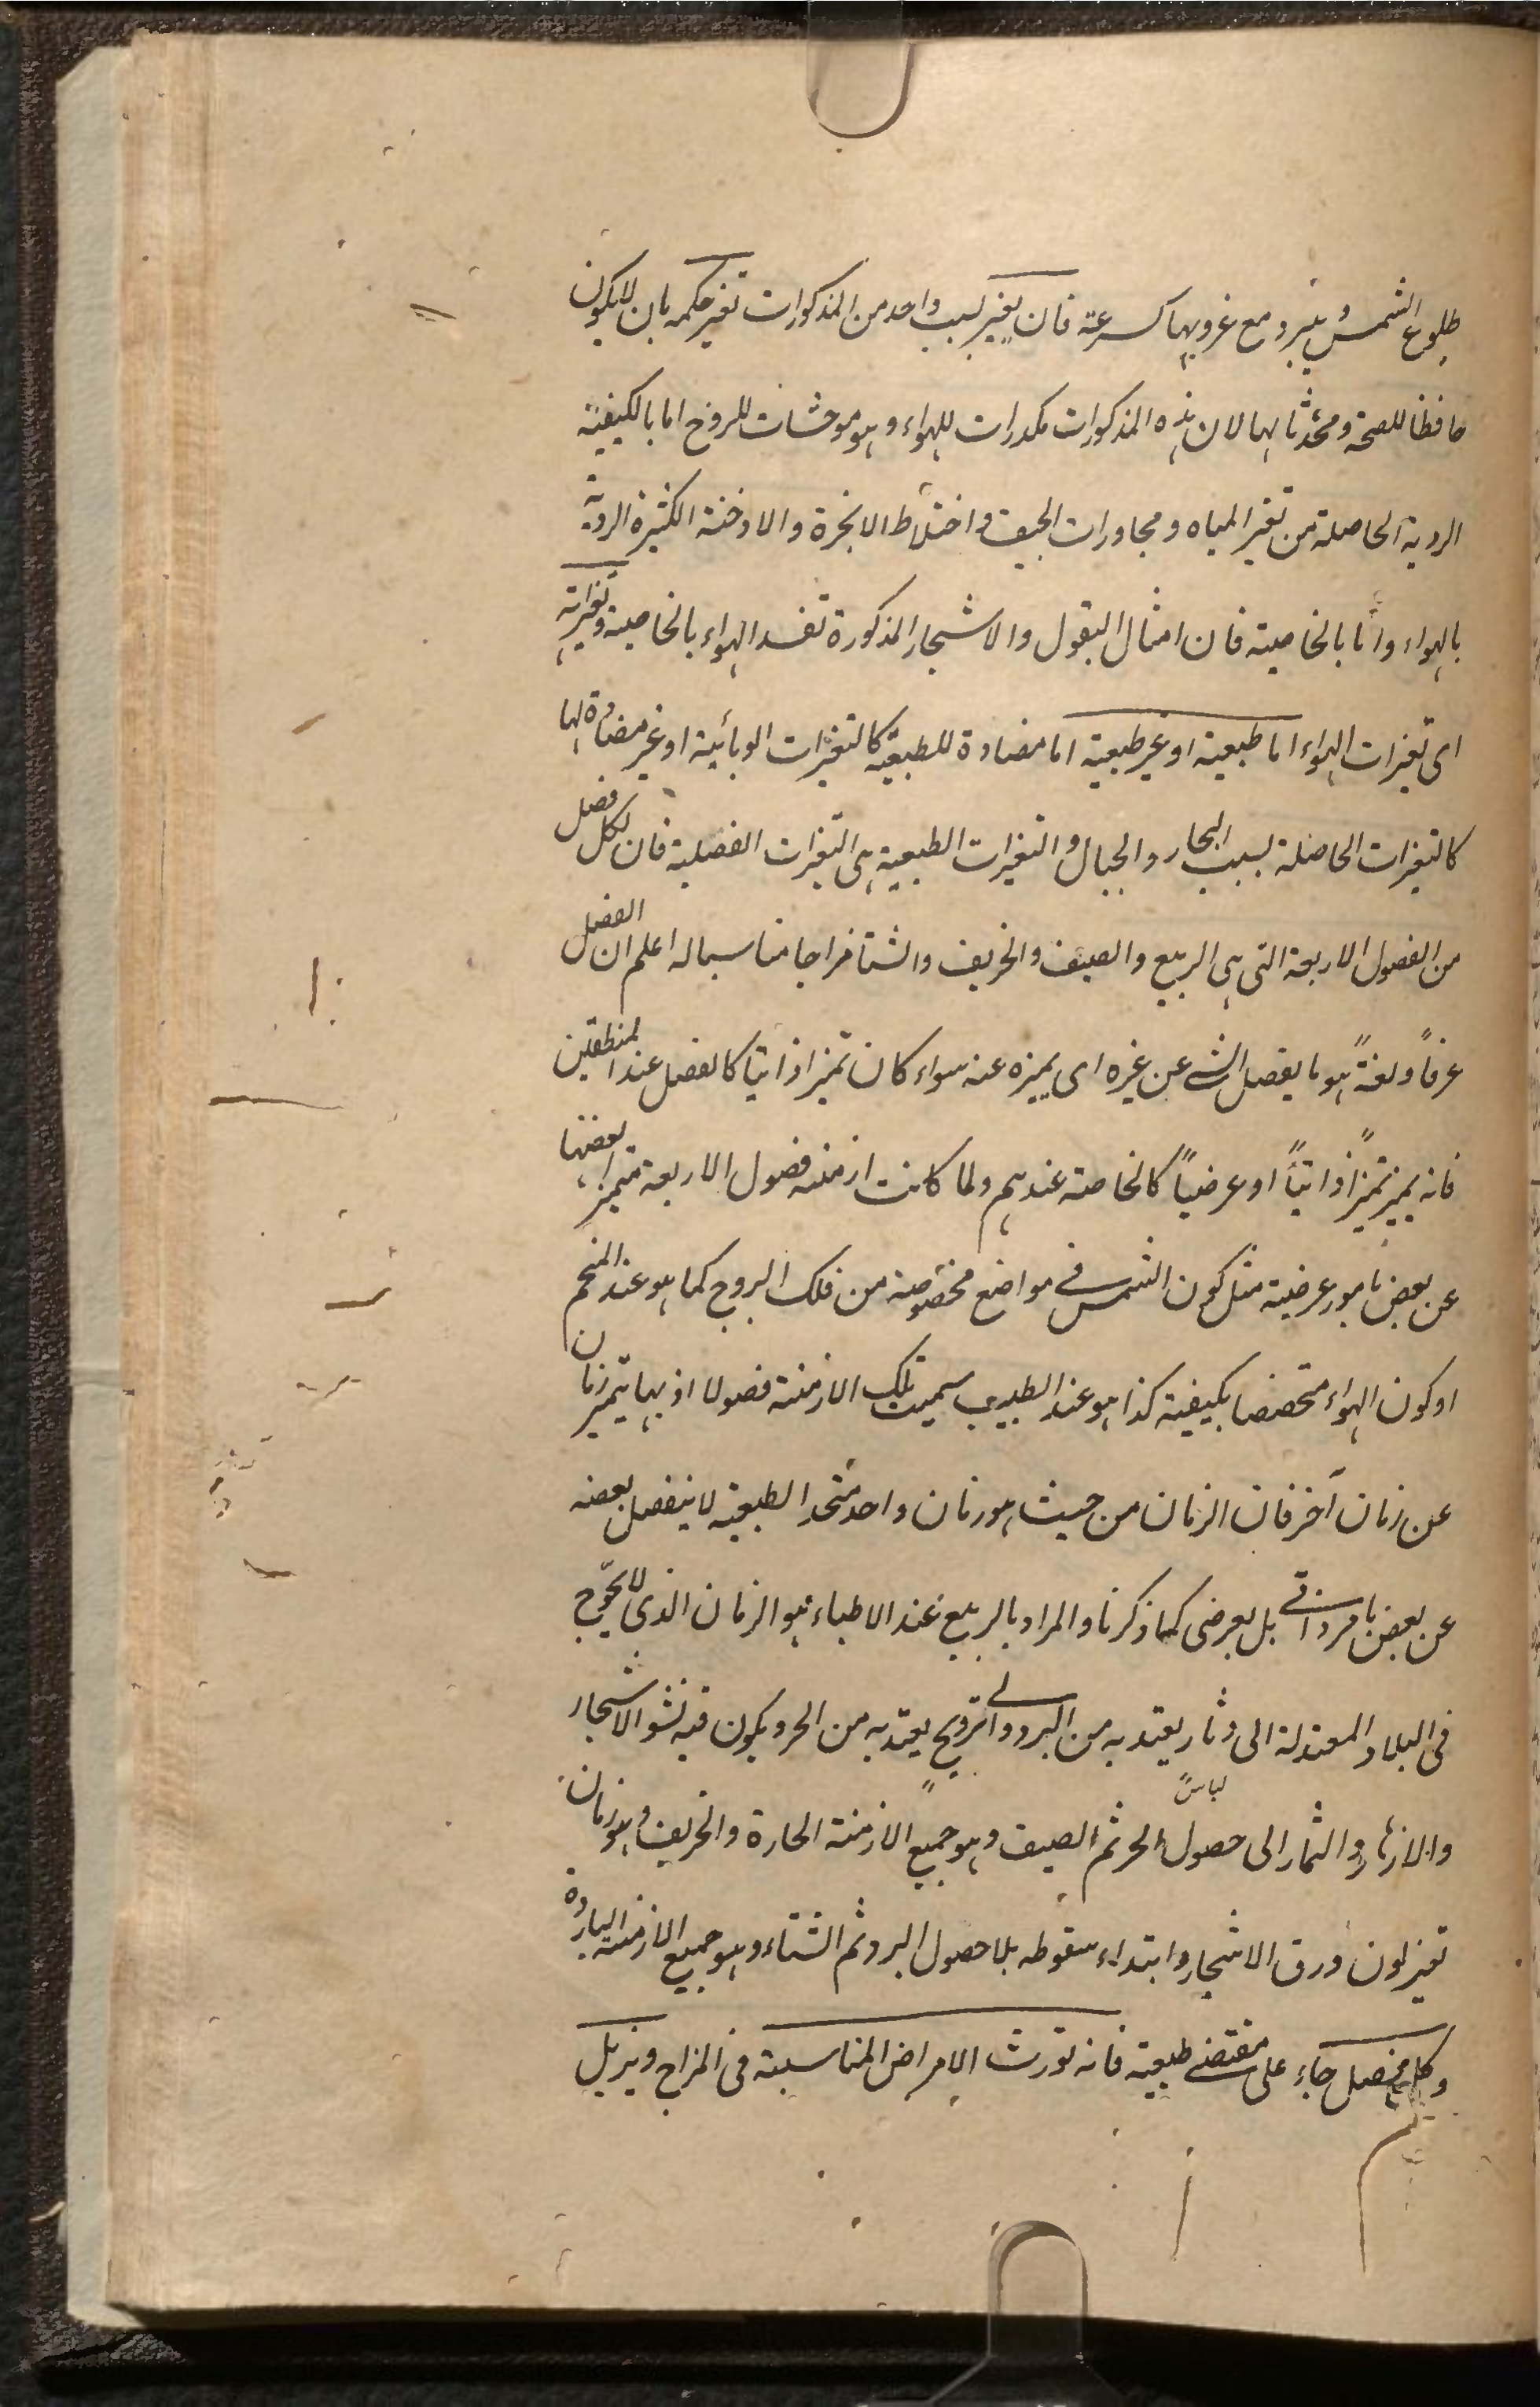 طلوع الشمس يبرد مع غروبها بسرعة فان تغير بسبب واحد من المذكورات تغير حكمه بان لا يكون
حافظا للصحة ومحدثا لها لان هذه المذكورات مكدرات للهواء وهو موحشات للروح اما بالكيفية
الردية الحاصلة من تغير المياه ومجاورات الجيف واختلاط الابخرة والادخنة الكثيرة الردية
بالهواء واما بالخاصية فان امثال البقول والاشجار المذكورة تفسد الهواء بالخاصية وتغيراته
اى تغيرات الهواء اما طبيعية او غير طبيعية اما مضادة للطبيعة كالتغيرات الوبائية او غير مضادة لها
كالتغيرات الحاصلة بسبب البحار والجبال والتغيرات الطبيعية هى التغيرات الفصلية فان لكل فصل
من الفصول الاربعة التى هى الربيع والصيف والخريف والشتا مزاجا مناسبا له اعلم ان الفصل
عرفاً ولغةً هو ما يفصل الشى عن غيره اى يميزه عنه سواء كان تميزا ذاتيا كالفصل عند المنطقين
فانه يميز تميزاً ذاتياً او عرضياً كالخاصة عندهم ولما كانت ازمنه فصول الاربعة متميزا بعضها
عن بعض بامور عرضية مثل كون الشمس فى مواضع مخصوصة من فلك البروج كما هو عند المنجم
او كون الهواء متخصصا بكيفية كذا هو عند الطبيب سميت تلك الازمنة فصولا اذ بها يتميز زمان
عن زمان آخر فان الزمان من حيث هو زمان واحد متحد الطبيعة لا ينفصل بعضه
عن بعض بامر ذاتى بل بعرضى كما ذكرنا والمراد بالربيع عند الاطباء هو الزمان الذى لا يحوج
فى البلاد المعتدلة الى دثار يعتد به من البرد والى ترويح يعتد به من الحر ويكون فيه نشو الاشجار
والازهار والثمار الى حصول لباس الحر ثم الصيف وهو جميع الازمنة الحارة والخريف وهو زمان
تغير لون ورق الاشجار وابتداء سقوطه بلا حصول البرد ثم الشتاء وهو جميع الازمنة الباردة
وكل فصل جاء على مقتضى طبيعية فانه تورث الامراض المناسبة فى المزاج ويزيل